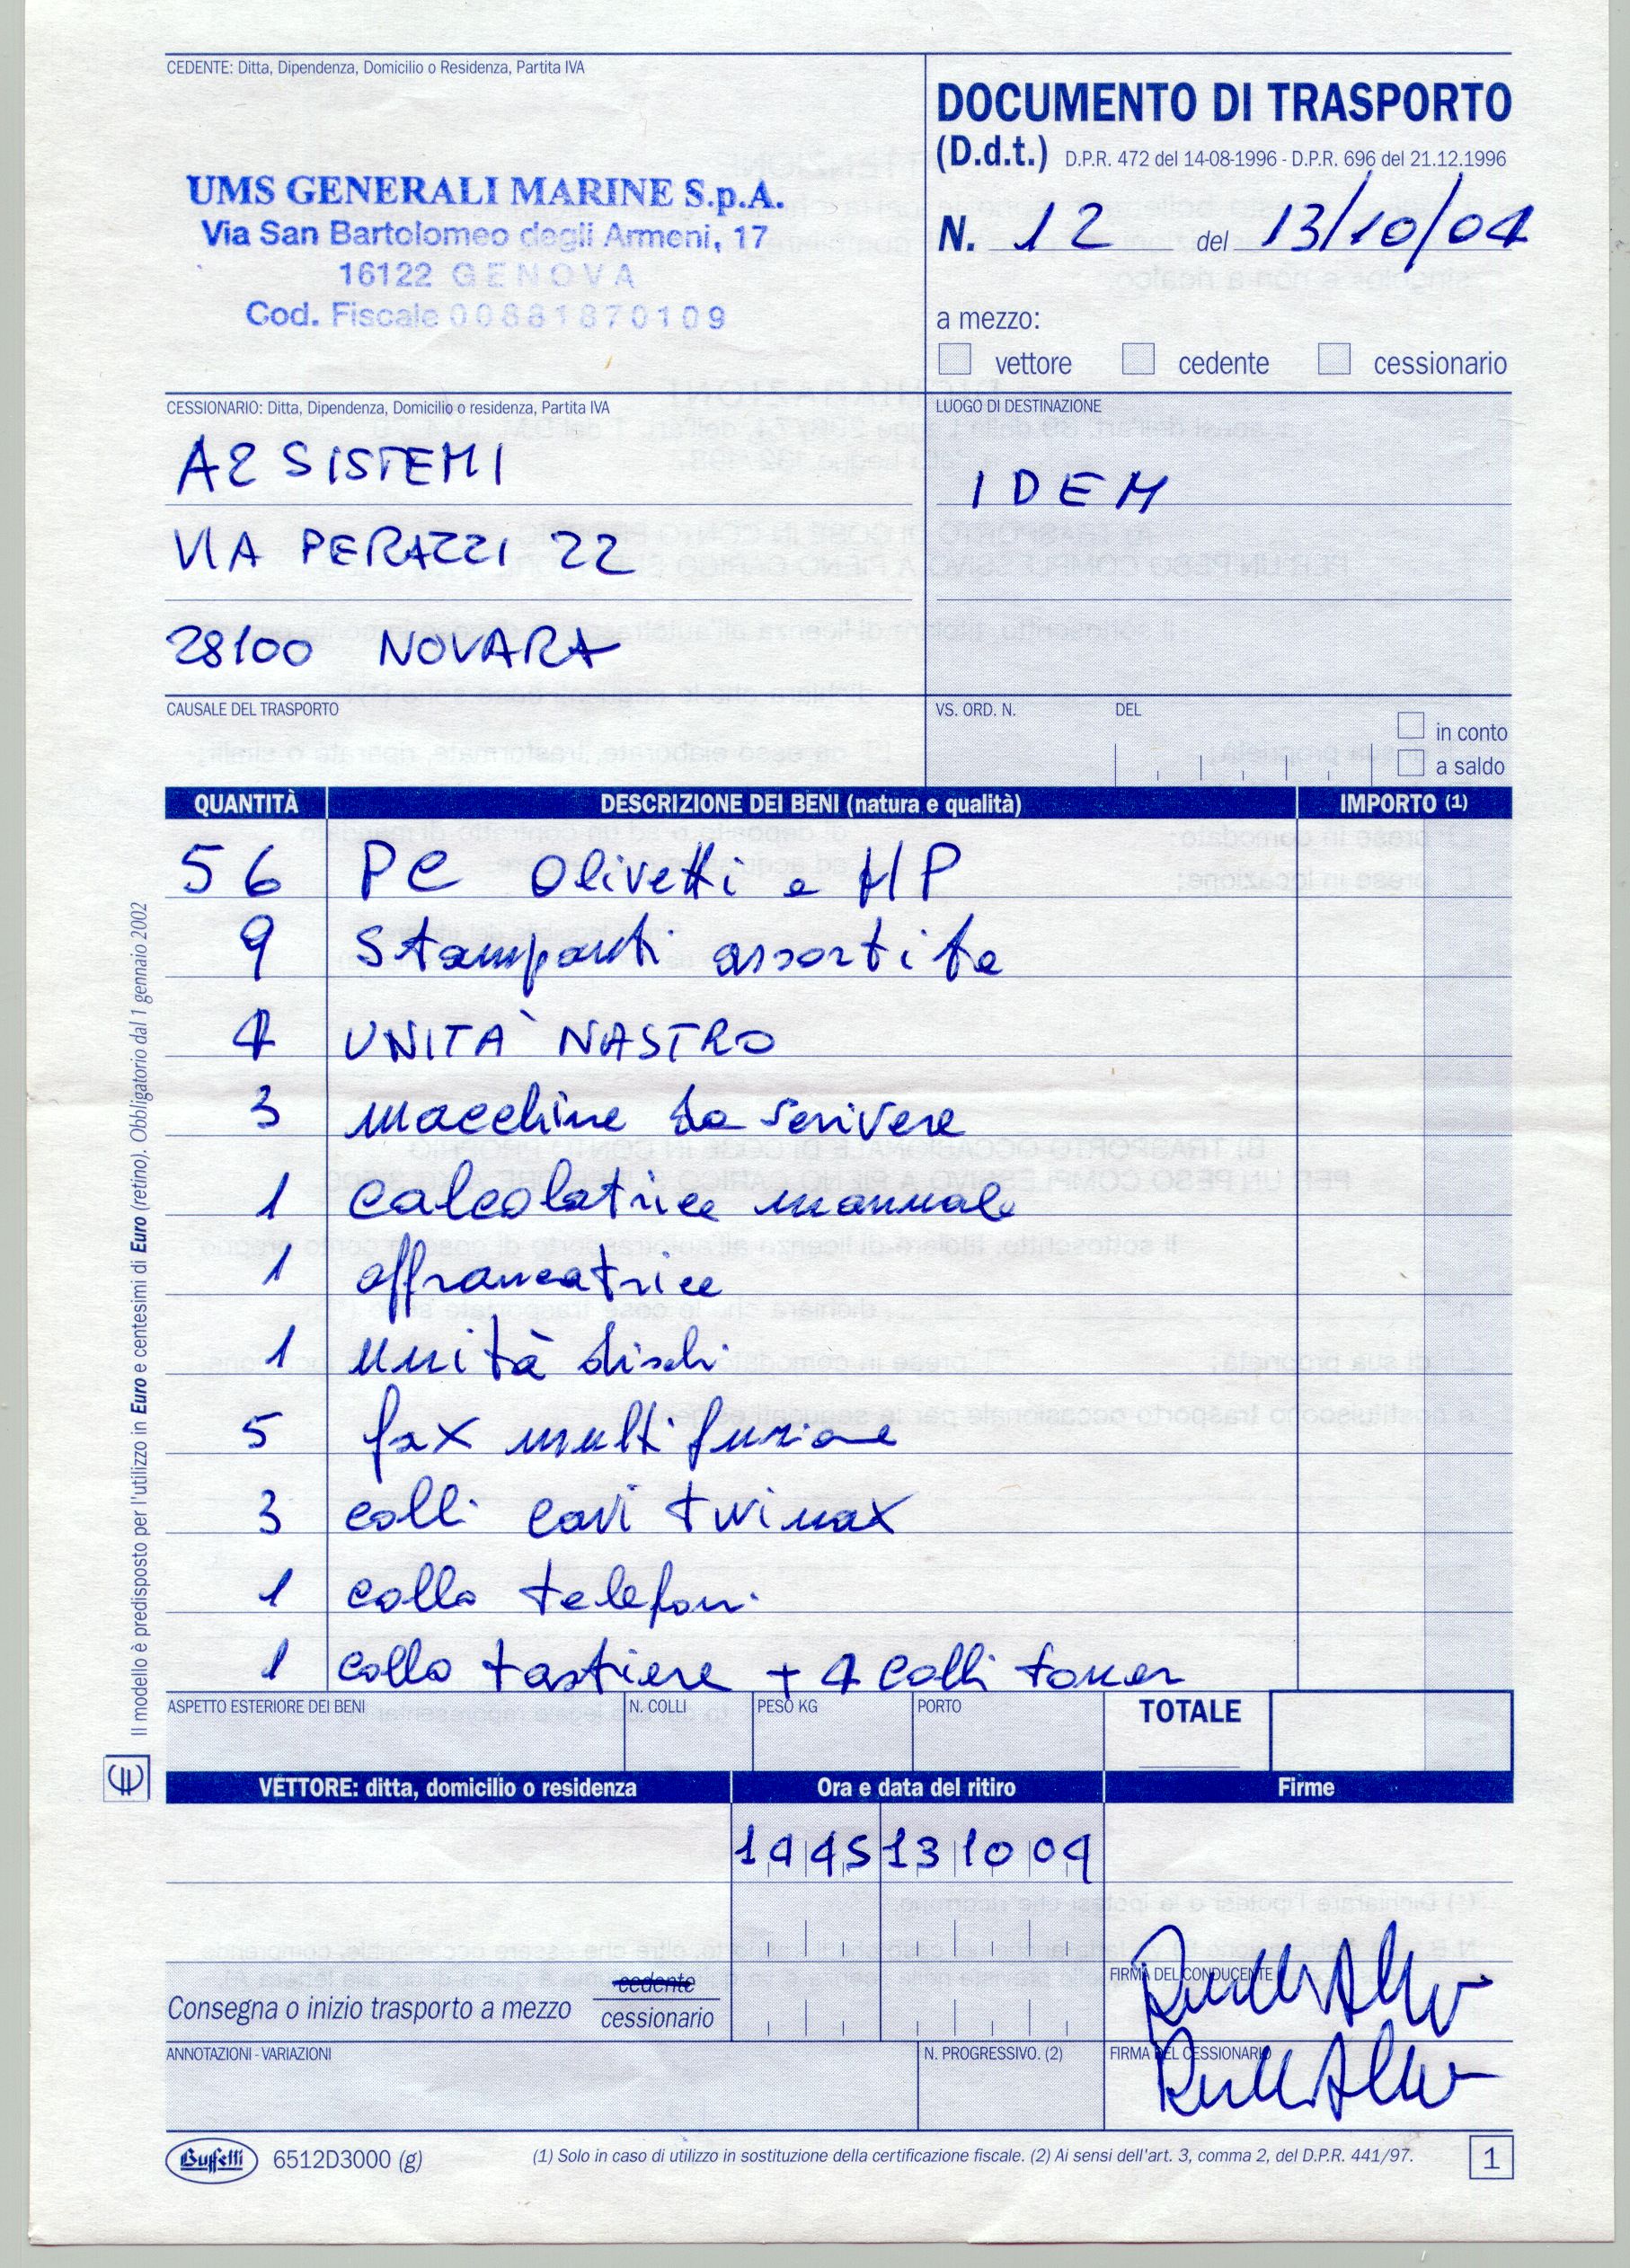 CEDENTE: Ditta, Dipendenza, Domicilio o Residenza, Partita IVA
UMS GENERALI MARINE S.p.A.
Via San Bartolomeo degli Armeni, 17
16122 GENOVA
Cod. Fiscale 00881870109
DOCUMENTO DI TRASPORTO
(D.d.t.) D.P.R. 472 del 14-08-1996 - D.P.R. 696 del 21.12.1996
N. 12 del 13/10/04
a mezzo:
vettore cedente cessionario
CESSIONARIO: Ditta, Dipendenza, Domicilio o residenza, Partita IVA
A2 SISTEMI
VIA PERAZZI 22
28100 NOVARA
LUOGO DI DESTINAZIONE
IDEM
CAUSALE DEL TRASPORTO
VS. ORD. N. DEL
in conto
a saldo
QUANTITÀ DESCRIZIONE DEI BENI (natura e qualità) IMPORTO (1)
56 PC Olivetti e HP
9 Stampanti assortite
4 UNITA` NASTRO
3 macchine da scrivere
1 calcolatrice manuale
1 affrancatrice
1 unità dischi
5 fax multifunzione
3 colli cavi twinax
1 collo telefoni
1 collo tastiere + 4 colli toner
Il modello è predisposto per l'utilizzo in Euro e centesimi di Euro (retino). Obbligatorio dal 1 gennaio 2002
ASPETTO ESTERIORE DEI BENI N. COLLI PESO KG PORTO TOTALE
VETTORE: ditta, domicilio o residenza Ora e data del ritiro Firme
1445 13 10 04
Consegna o inizio trasporto a mezzo cedente
cessionario
FIRMA DEL CONDUCENTE
ANNOTAZIONI - VARIAZIONI N. PROGRESSIVO. (2) FIRMA DEL CESSIONARIO
Buffetti 6512D3000 (g) (1) Solo in caso di utilizzo in sostituzione della certificazione fiscale. (2) Ai sensi dell'art. 3, comma 2, del D.P.R. 441/97. 1